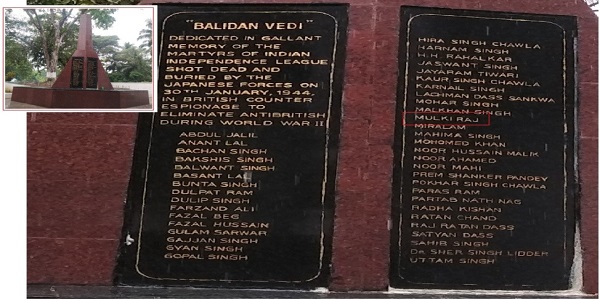 "BALIDAN VEDI"
DEDICATED IN GALLANT
MEMORY OF THE
MARTYRS OF INDIAN
INDEPENDENCE LEAGUE
SHOT DEAD AND
BURIED BY THE
JAPANESE FORCES ON
30TH JANUARY, 1944,
IN BRITISH COUNTER
ESPIONAGE TO
ELIMINATE ANTIBRITISH
DURING WORLD WAR II
ABDUL JALIL
ANANT LAL
BACHAN SINGH
BAKSHIS SINGH
BALWANT SINGH
BASANT LAL
BUNTA SINGH
DULPAT RAM
DULIP SINGH
FARZAND ALI
FAZAL BEG
FAZAL HUSSAIN
GULAM SARWAR
GAJJAN SINGH
GYAN SINGH
GOPAL SINGH
HIRA SINGH CHAWLA
HARNAM SINGH
H.H. RAHALKAR
JASWANT SINGH
JAYARAM TIWARI
KAUR SINGH CHAWLA
KARNAIL SINGH
LACHMAN DASS SANKWA
MOHAR SINGH
MALKHAN SINGH
MULKI RAJ
MIRALAM
MAHIMA SINGH
MOHOMED KHAN
NOOR HUSSAIN MALIK
NOOR AHAMED
NOOR MAHI
PREM SHANKER PANDEY
POKHAR SINGH CHAWLA
PARAS RAM
PARTAB NATH NAG
RADHA KISHAN
RATAN CHAND
RAJ RATAN DASS
SATYAN DASS
SAHIB SINGH
DR SHER SINGH LIDDER
UTTAM SINGH